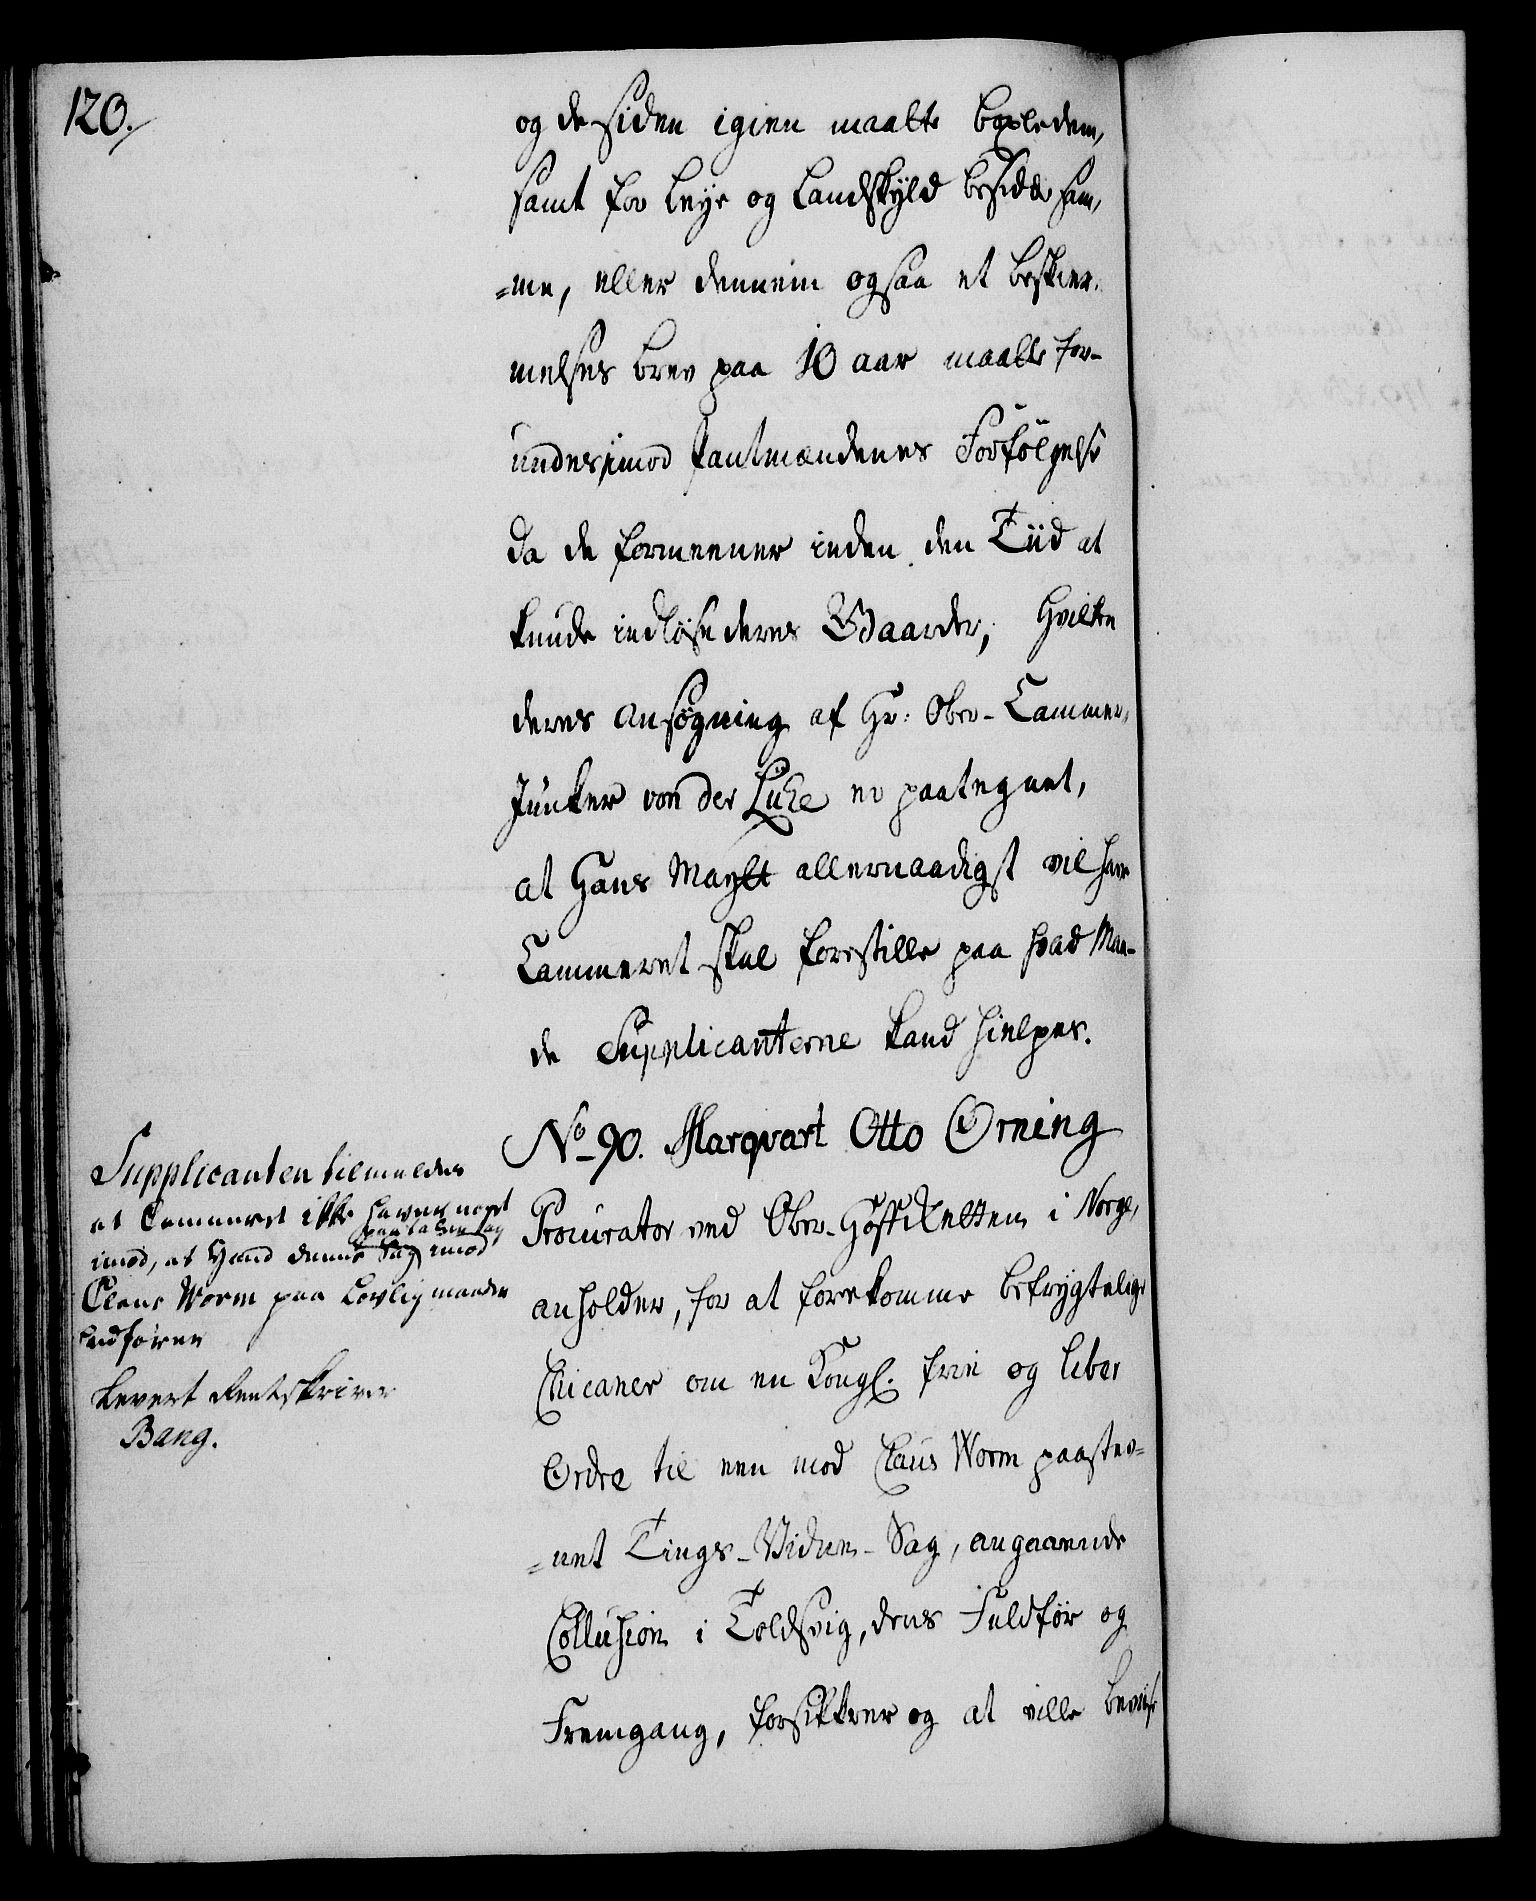 120.
og de siden igien maatte bøxledem,
samt for leye og Landskyld besidde sam,
=me, eller dennem ogsaa et beskier,
melses brev paa 10 aar maatte for-
undes, imod Pantmændenes Forfølgelse
da de formeener inden den Tiid at
kunde indløse deres Gaarder; hvilken
deres ansøgning af Hr: Ober-Cammer,
Junker von der Lühe er paategnet,
at Hans Maytt allernaadigst vil have
Cammeret skal forestille paa hvad Maa-
de Supplicanterne kand hielpes.
No 90. Marqvart Otto Örning
Procurator ved Ober-Hoffretten i Norge,
anholder, for at forekomme befrygtelige
Chicaner om en Kongl. frie og liber
Ordre til een mod Claus Worm paastev-
=net Tings-Vidne-Sag, angaaende
Collusion i Toldsvig, dens Fuldför og
Fremgang, forsikkrer og at ville beviise
Supplicanten tilmeldes
at Cammeret ikke haver noget
imod, at Hand denne Sag imod
Claus Worm paa Lovlig maade
udfører
Levert Rentskriver
Bang.